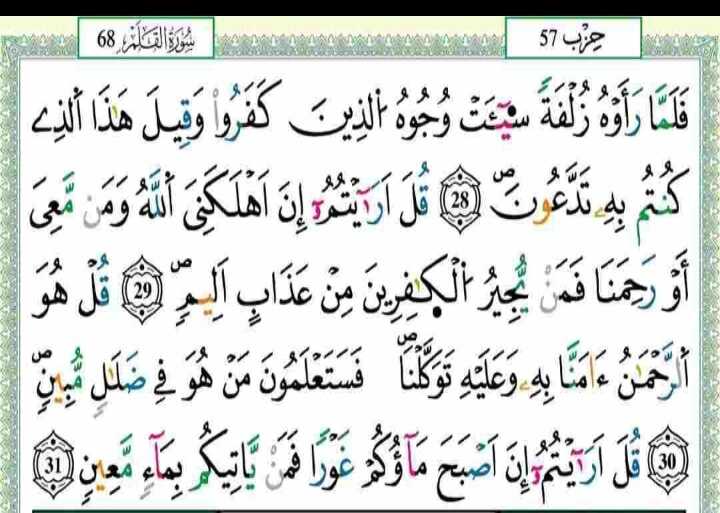 حِزْب 57
سُورَةُ القَلَمِ 68
فَلَمَّا رَأَوْهُ زُلْفَةً سِيٓـَٔتْ وُجُوهُ اُ۬لذِينَ كَفَرُواْ وَقِيلَ هَٰذَا اَ۬لذِے
كُنتُم بِهِۦ تَدَّعُونَۖ 28 قُلَ اَرَٰٓيْتُمُۥٓ إِنَ اَهْلَكَنِىَ اَ۬للَّهُ وَمَن مَّعِىَ
أَوْ رَحِمَنَا فَمَنْ يُّجِيرُ اُ۬لْكٰ۪فِرِينَ مِنْ عَذَابٍ اَلِيمٖۖ 29 قُلْ هُوَ
اَ۬لرَّحْمَٰنُ ءَامَنَّا بِهِۦ وَعَلَيْهِ تَوَكَّلْنَاۖ فَسَتَعْلَمُونَ مَنْ هُوَ فِے ضَلَٰلٖ مُّبِينٖۖ
30 قُلَ اَرَٰٓيْتُمُۥٓ إِنَ اَصْبَحَ مَآؤُكُمْ غَوْراٗ فَمَنْ يَّاتِيكُم بِمَآءٖ مَّعِينٖ 31